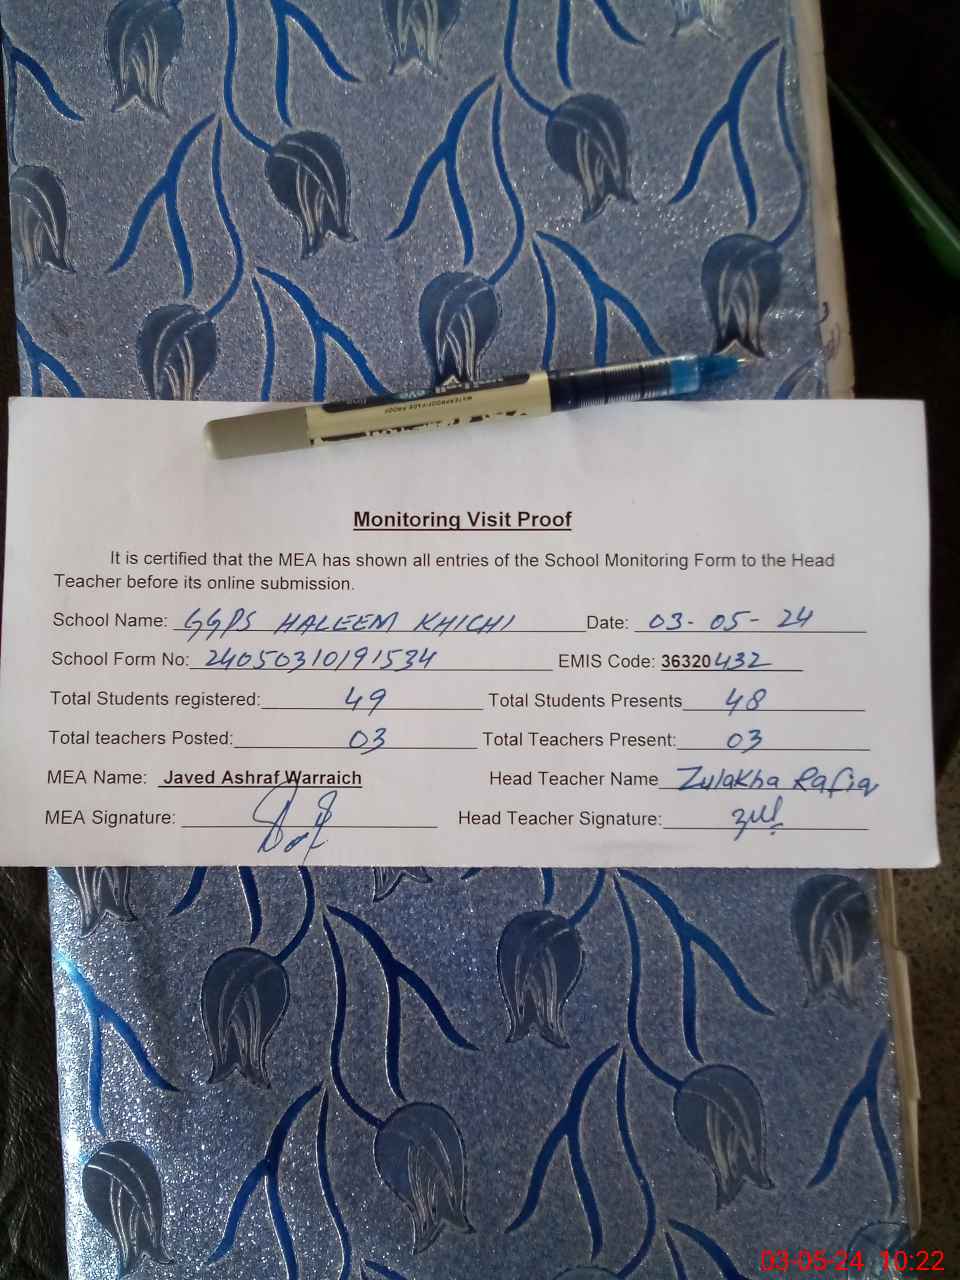 Monitoring Visit Proof
It is certified that the MEA has shown all entries of the School Monitoring Form to the Head
Teacher before its online submission.
School Name: GGPS HALEEM KHICHI Date: 03-05-24
School Form No: 24050310191534 EMIS Code: 36320432
Total Students registered: 49 Total Students Presents 48
Total teachers Posted: 03 Total Teachers Present: 03
MEA Name: Javed Ashraf Warraich Head Teacher Name Zulakha Rafiq
MEA Signature: Head Teacher Signature:
03-05-24 10:22